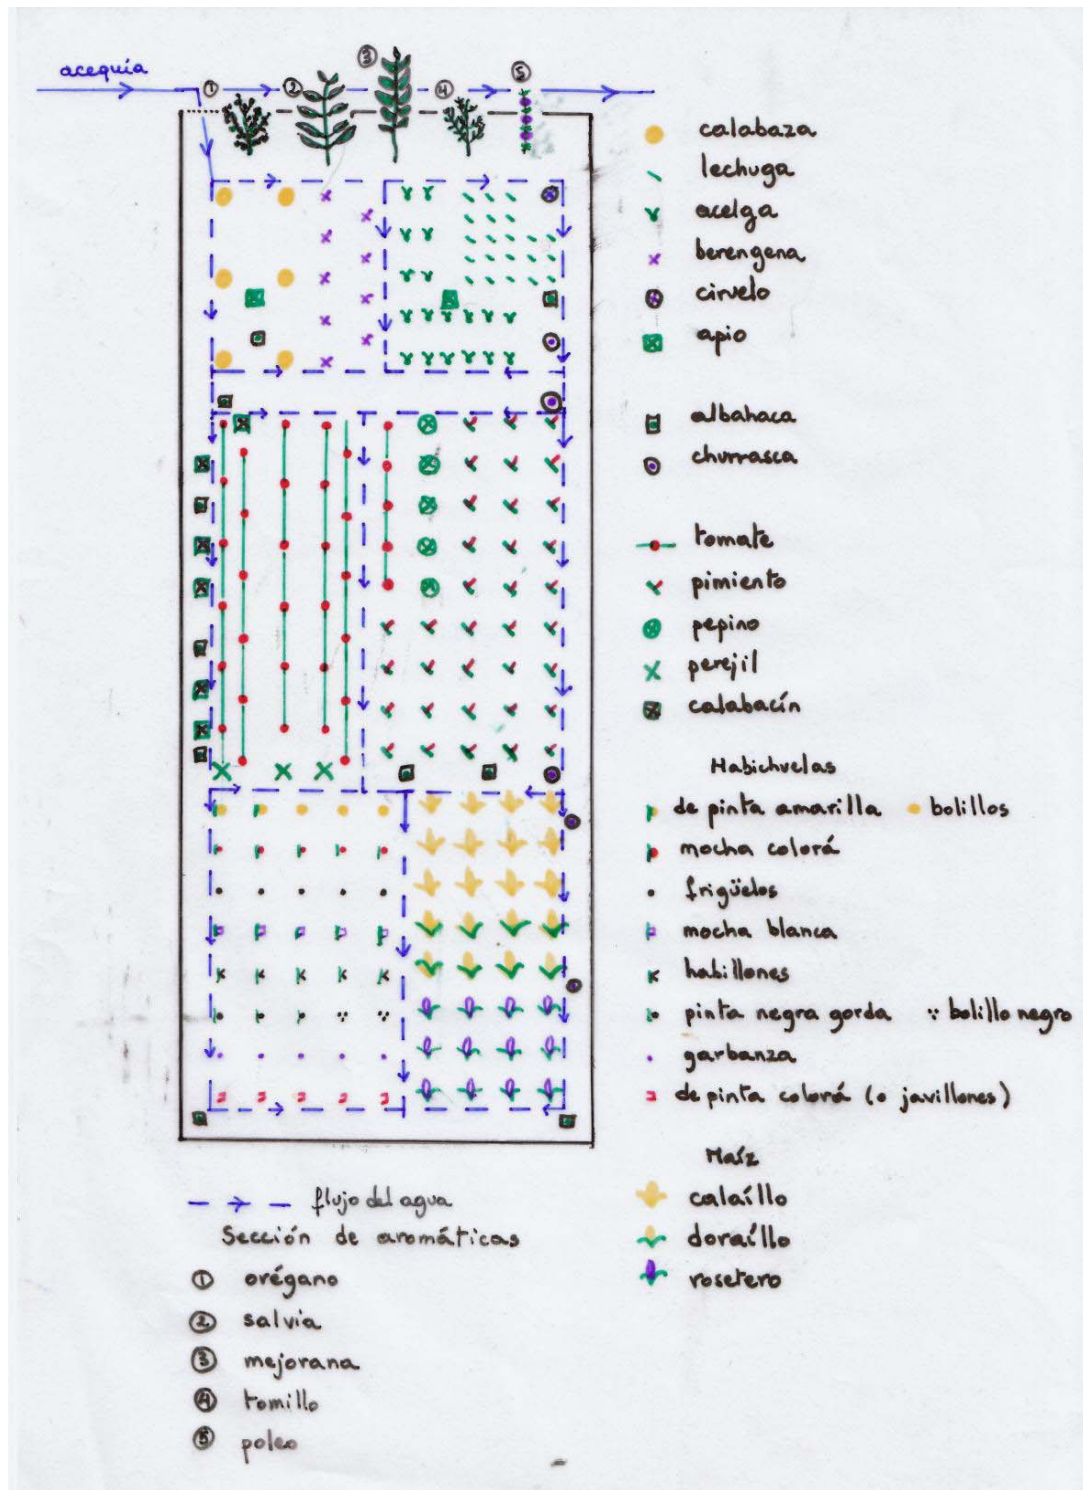 acequia
① ② ③ ④ ⑤
calabaza
lechuga
acelga
berengena
ciruelo
apio
albahaca
churrasca
tomate
pimiento
pepino
perejil
calabacín
Habichuelas
de pinta amarilla bolillos
mocha colorá
frigüelos
mocha blanca
habillones
pinta negra gorda bolillo negro
garbanza
de pinta colorá (o javillones)
Maíz
calaíllo
doraíllo
rosetero
flujo del agua
Sección de aromáticas
① orégano
② salvia
③ mejorana
④ tomillo
⑤ poleo